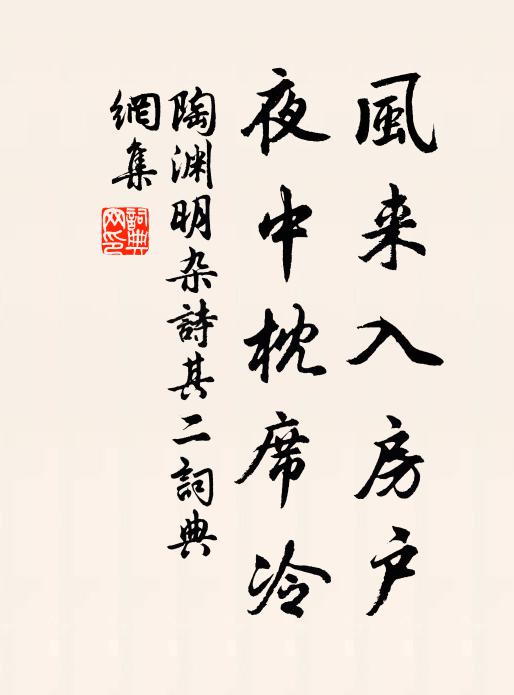 風来入房户
夜中枕席冷
陶渊明杂詩其二詞典
網集
詞典
网印